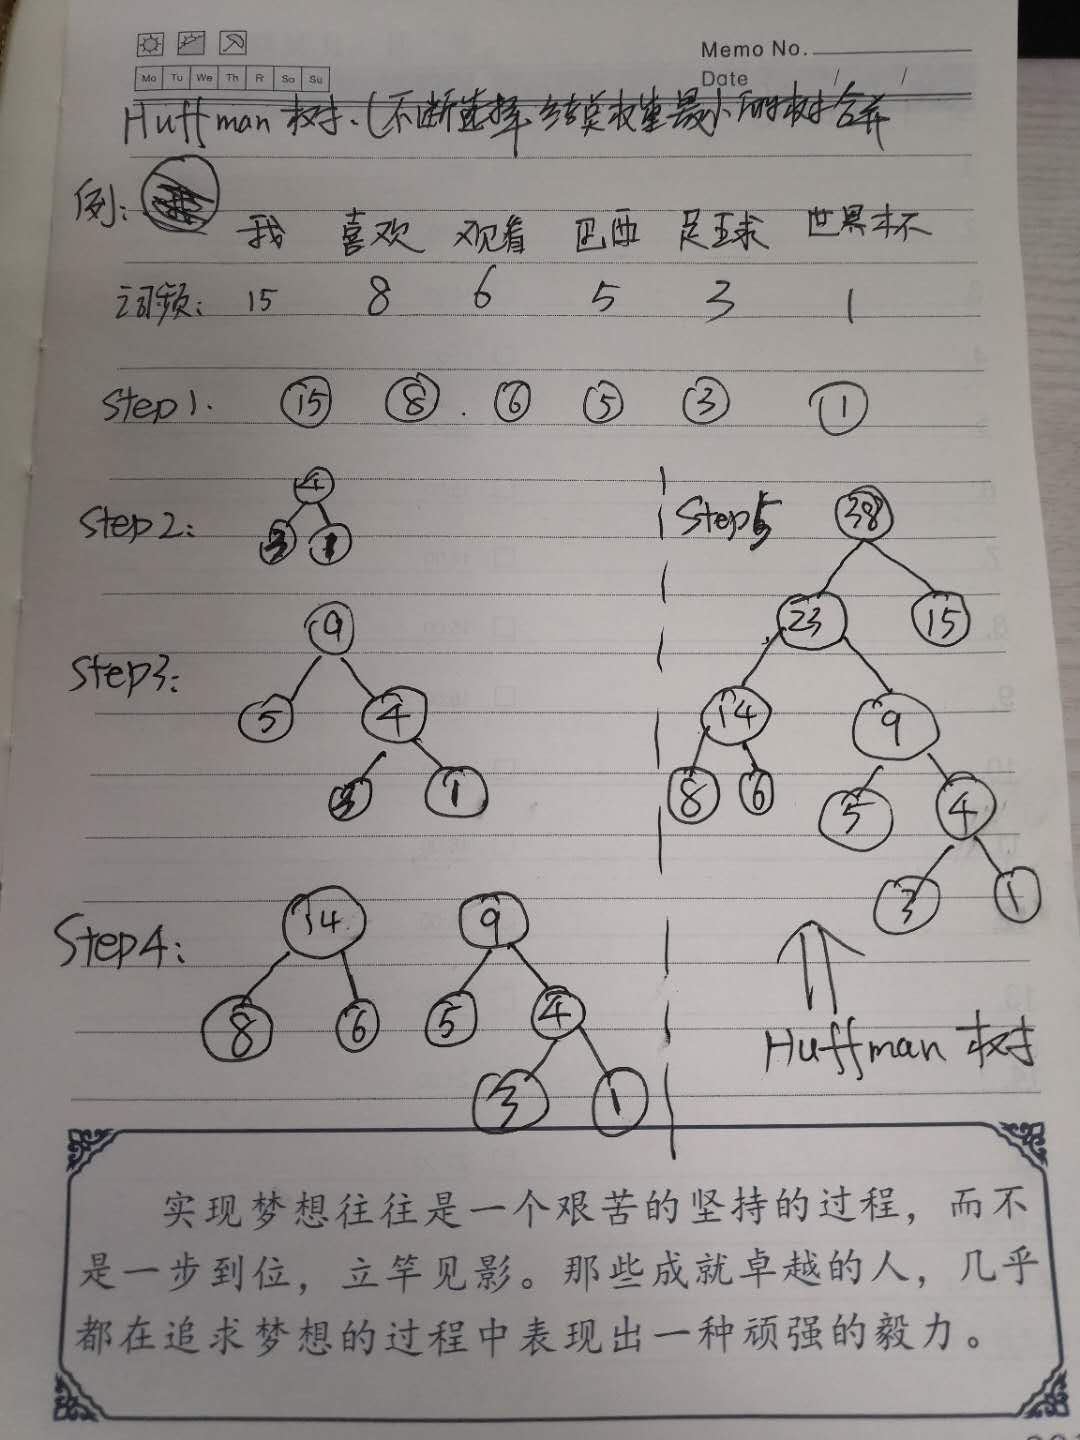 Memo No.
Mo Tu We Th Fr Sa Su
Date / /
Huffman 树.(不断选择结点权重最小的树合并
例:
我 喜欢 观看 巴西 足球 世界杯
词频: 15 8 6 5 3 1
Step1. 15 8 6 5 3 1
Step2:
4
3 1
Step3:
9
5 4
3 1
Step4:
14 9
8 6 5 4
3 1
Step5
38
23 15
14 9
8 6 5 4
3 1
Huffman 树
实现梦想往往是一个艰苦的坚持的过程，而不
是一步到位，立竿见影。那些成就卓越的人，几乎
都在追求梦想的过程中表现出一种顽强的毅力。